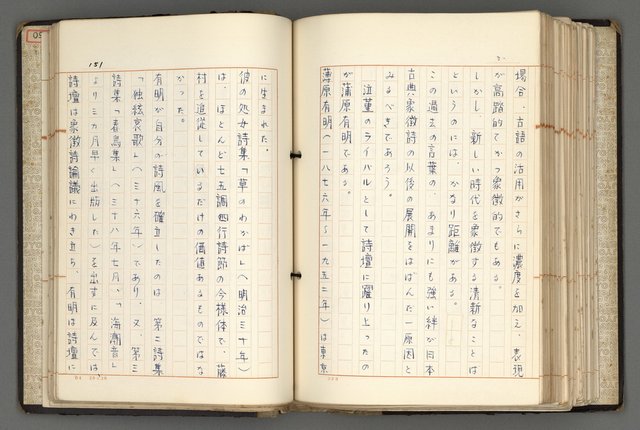 場合、古語の活用がさらに濃度を加え、表現
が高踏的でかつ象徴的でもある。
しかし、新しい時代を象徴する清新なことば
というのには、かなり距離がある。
この過去の言葉の、あまりにも強い絆が日本
古典象徴詩の以後の展開をはばんだ一原因と
みるべきであろう。
泣菫のライバルとして詩壇に躍り上ったの
が蒲原有明である。
蒲原有明(一八七六年〜一九五二年)は東京
151
に生まれた。
彼の処女詩集「草のわかば」(明治三十年)
は、ほとんど七五調四行詩節の今様体で、藤
村を追従しているだけの価値あるものではな
かった。
有明が自分の詩風を確立したのは、第二詩集
「独絃哀歌」(三十六年)であり、又、第三
詩集「春鳥集」(三十八年七月、「海潮音」
より三カ月早く出版した)を出すに及んでは、
詩壇は象徴詩論議にわき立ち、有明は詩壇に